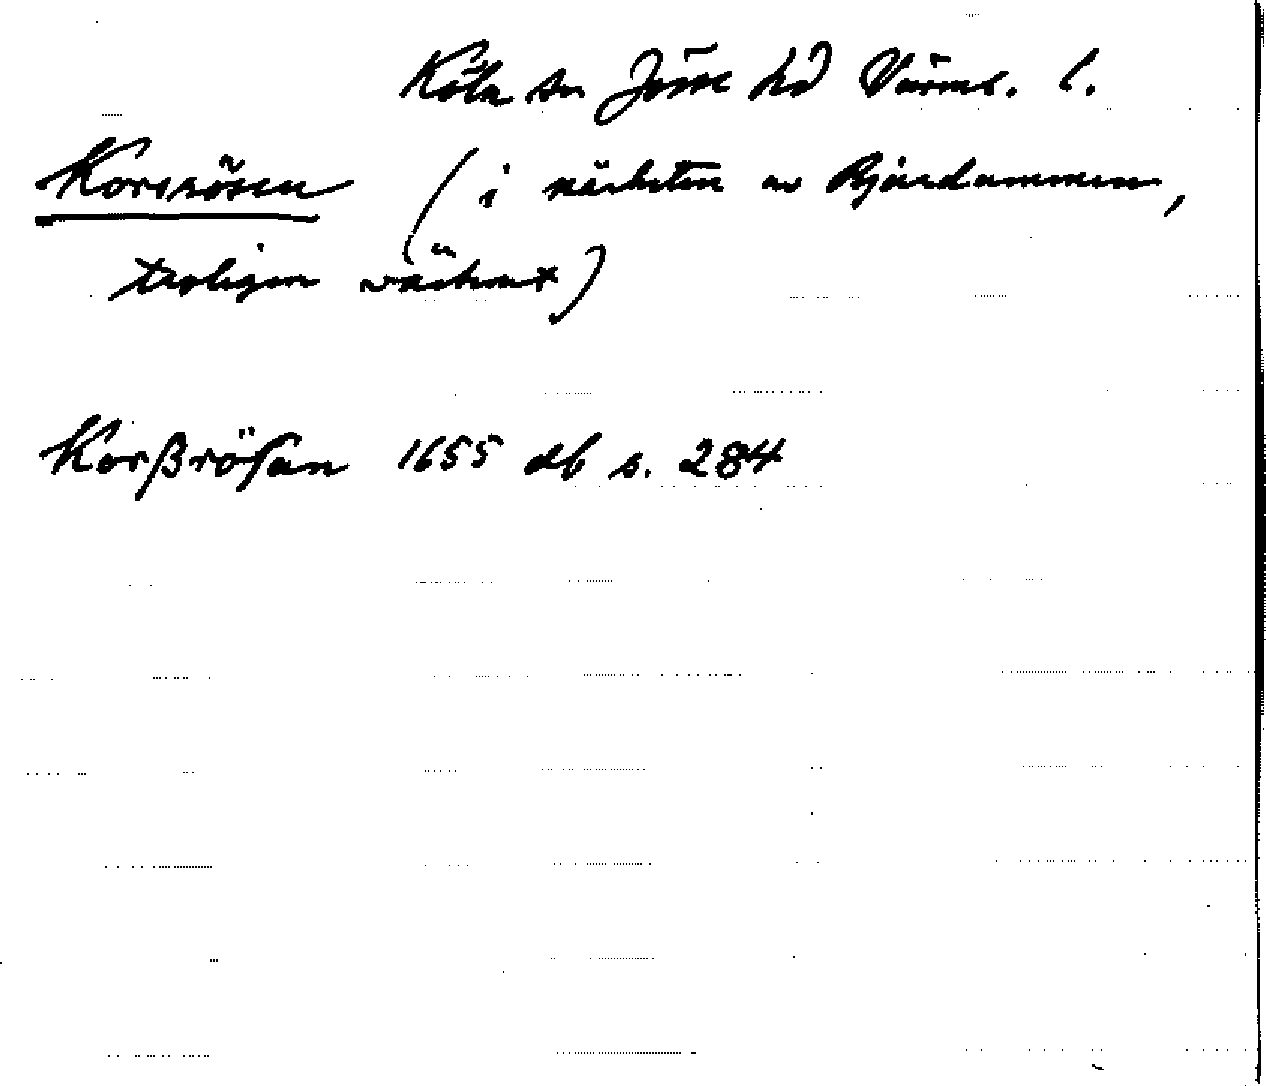 Köla sn Jösse hd Värml. l.
Korsrösen (i närheten av Bjurdammen,
troligen västerut)
Korßrösan 1655 db s. 284